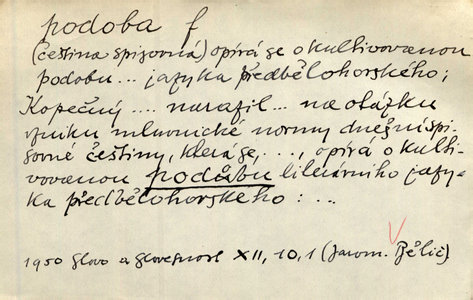 podoba f
(čeština spisovná) opírá se o kultivovanou
podobu... jazyka předbělohorského;
Kopečný .... narazil... na otázku
vzniku mluvnické normy dnešní spi-
sovné češtiny, která se, ..., opírá o kulti-
vovanou podobu literárního jazy-
ka předbělohorského: ...
1950 Slovo a slovesnost XII, 10, 1 (Jarom. Bělič)